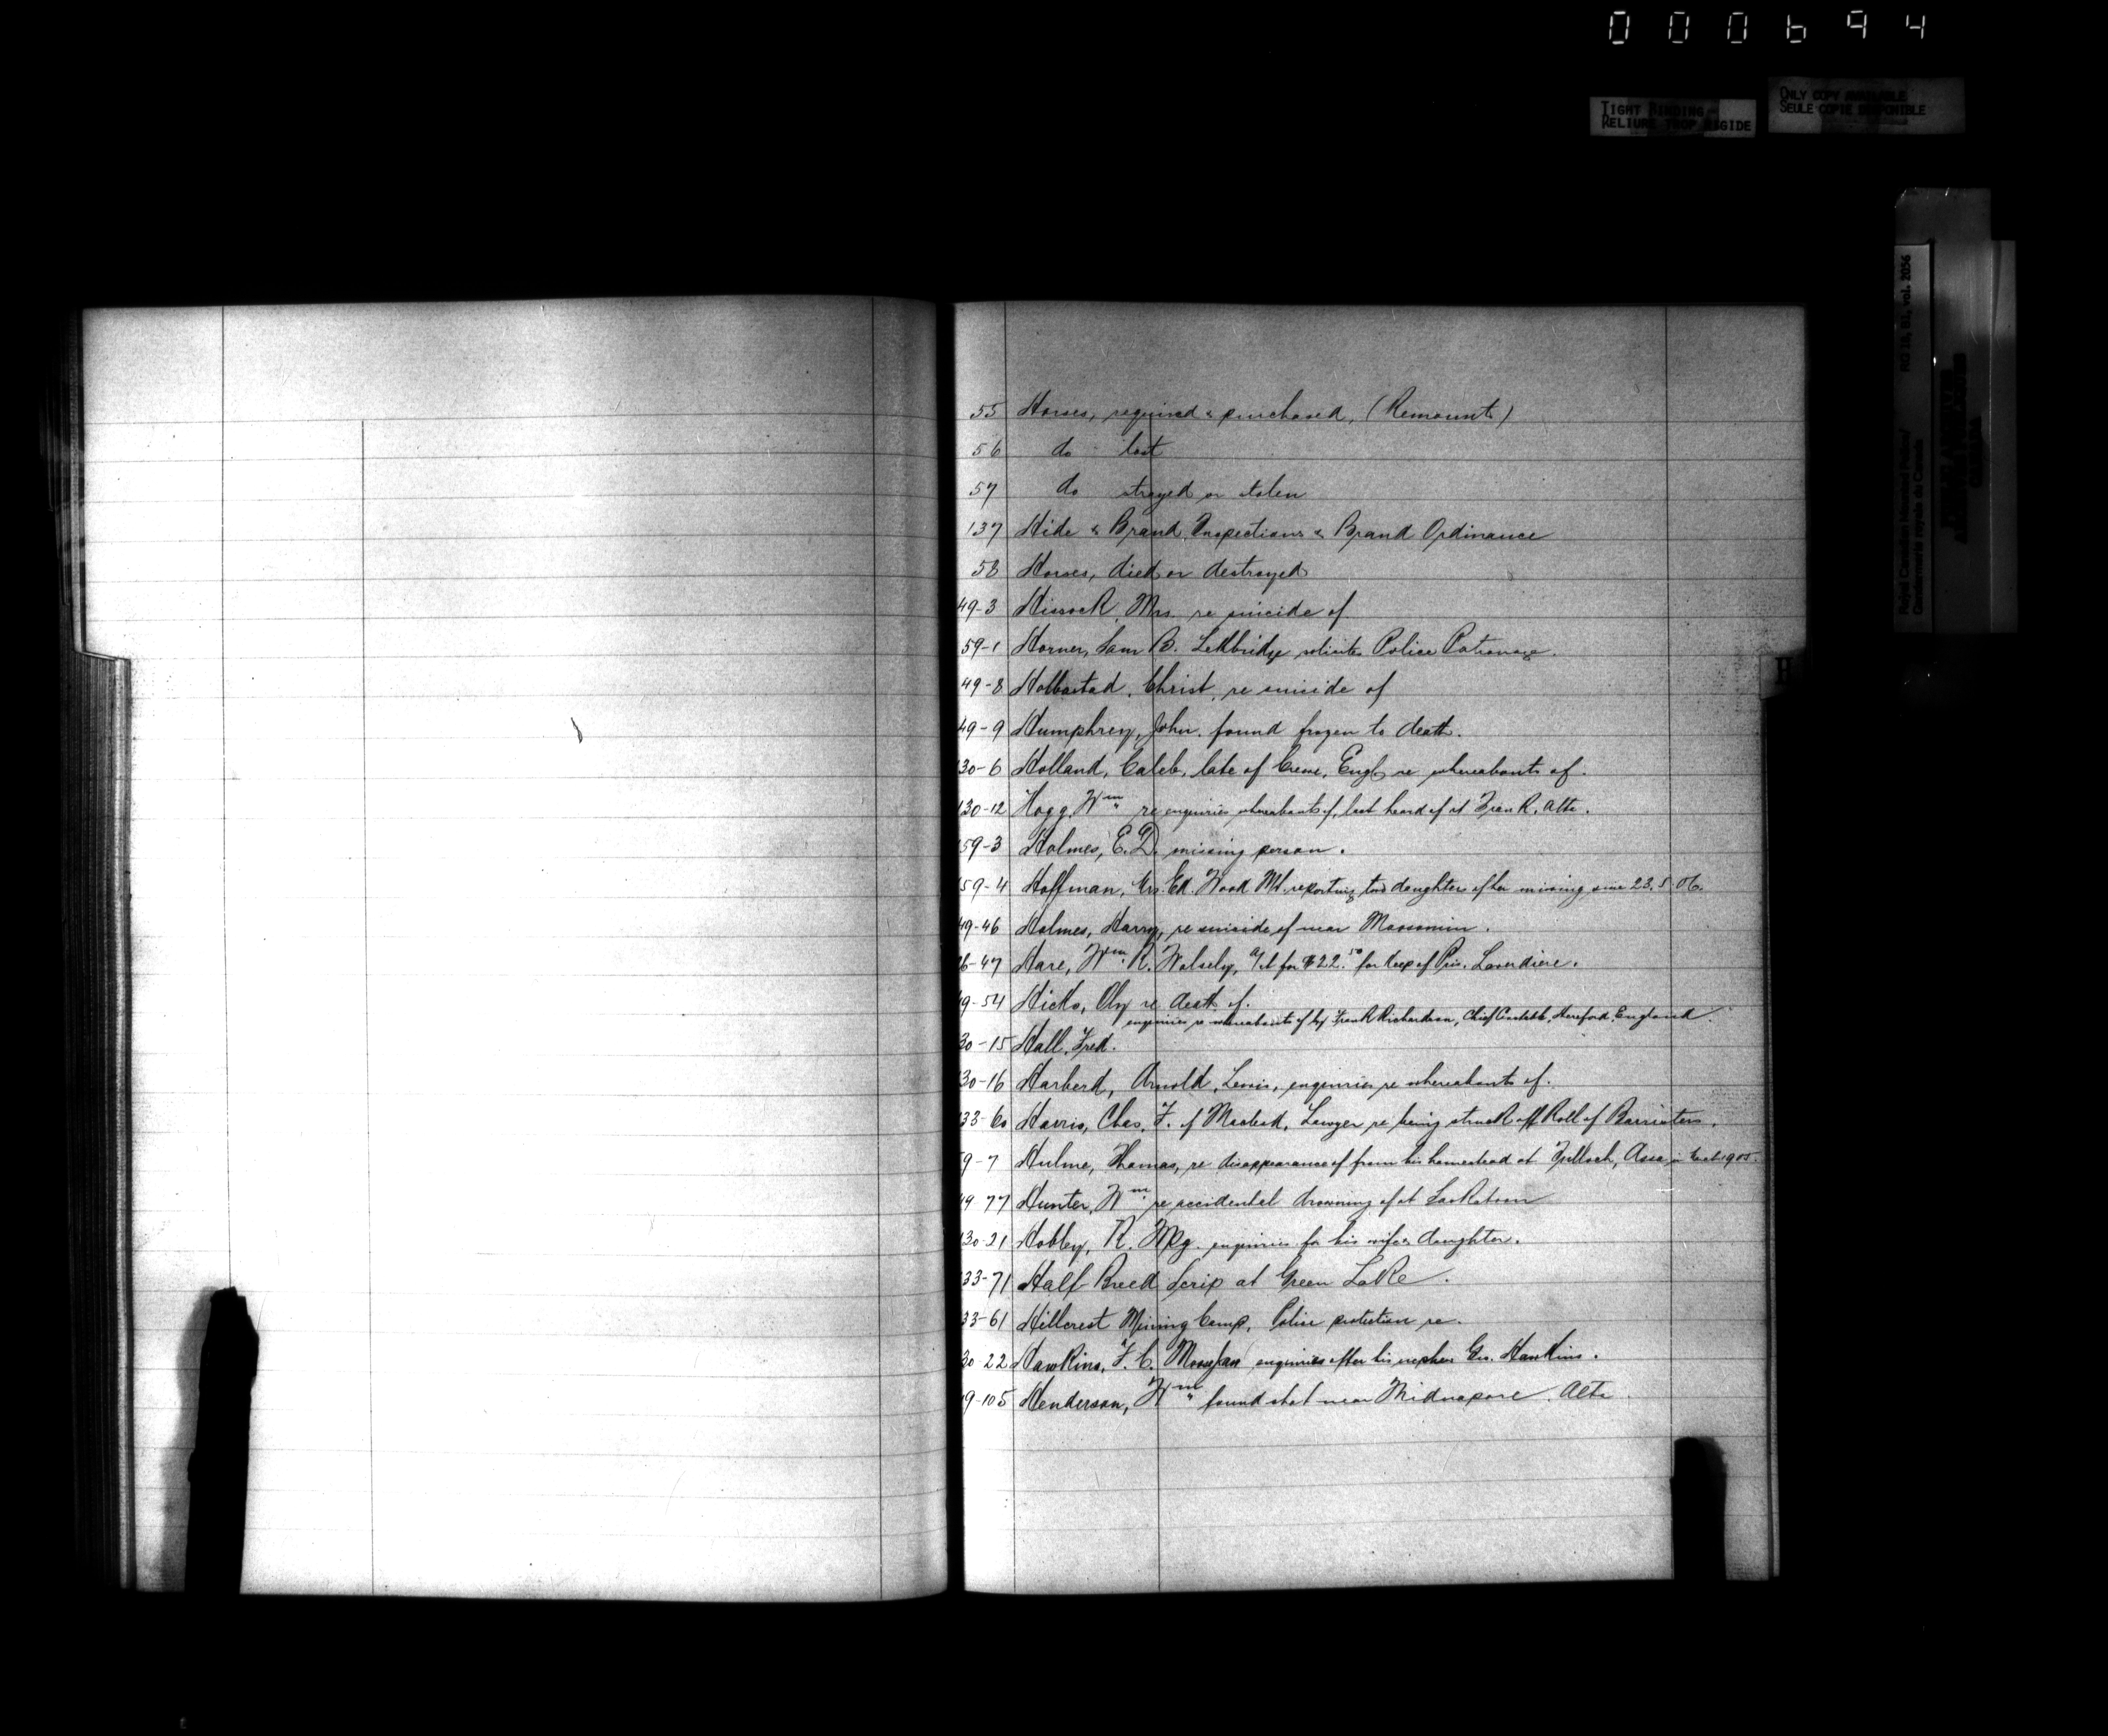 000694
TIGHT BINDING
RELIURE TROP RIGIDE
ONLY COPY AVAILABLE
SEULE COPIE DISPONIBLE
Royal Canadian Mounted Police/ RG 18, B1, vol. 2056
Gendarmerie royale du Canada
H
55 Horses, required & purchased, (Remounts)
56 do - lost
57 do strayed or stolen
137 Hide & Brand Inspections & Brand Ordinance
58 Horses, died or destroyed
49-3 Hissock, Mrs. re suicide of
59-1 Horner, Sam B. Lethbridge solicits Police Patronage.
49-8 Holbastad, Christ, re suicide of
49-9 Humphrey, John. found frozen to death.
30-6 Holland, Caleb, late of Crewe, Engl, re whereabouts of.
130-12 Hogg, Wm re enquiries whereabouts of, last heard of at R. Alta.
59-3 Holmes, E.D. missing person.
59-4 Hoffman, Mrs. Ed. Wood Mt. reporting two daughters of her missing since 23.5.06.
49-46 Holmes, Harry, re suicide of near Moosomin.
6-47 Hare, Wm. R. Wolsely, a/ct for $22.50 for keep of Pris. Laverdiere.
9-54 Hicks, Oly re death of.
enquiries re whereabouts of by Frank Richardson, Chief Constable, Hereford, England.
30-15 Hall, Fred.
30-16 Harberd, Arnold, Lewis, enquiries re whereabouts of.
33-60 Harris, Chas. F. of Macleod, Lawyer re being struck off Roll of Barristers.
59-7 Hulme, Thomas, re disappearance of from his homestead at Tulloch, Assa in Oct. 1905.
49 77 Hunter, Wm re accidental drowning of at Saskatoon
130-21 Hobley, R. Wpg. enquiries for his wife & daughter.
33-71 Half Breed Scrip at Green Lake.
33-61 Hillcrest Mining Camp, Police protection re.
30-22 Hawkins, F. C. Moosejaw enquiries after his nephew Geo. Hawkins.
9-105 Henderson, Wm found shot near Midnapore. Alta.